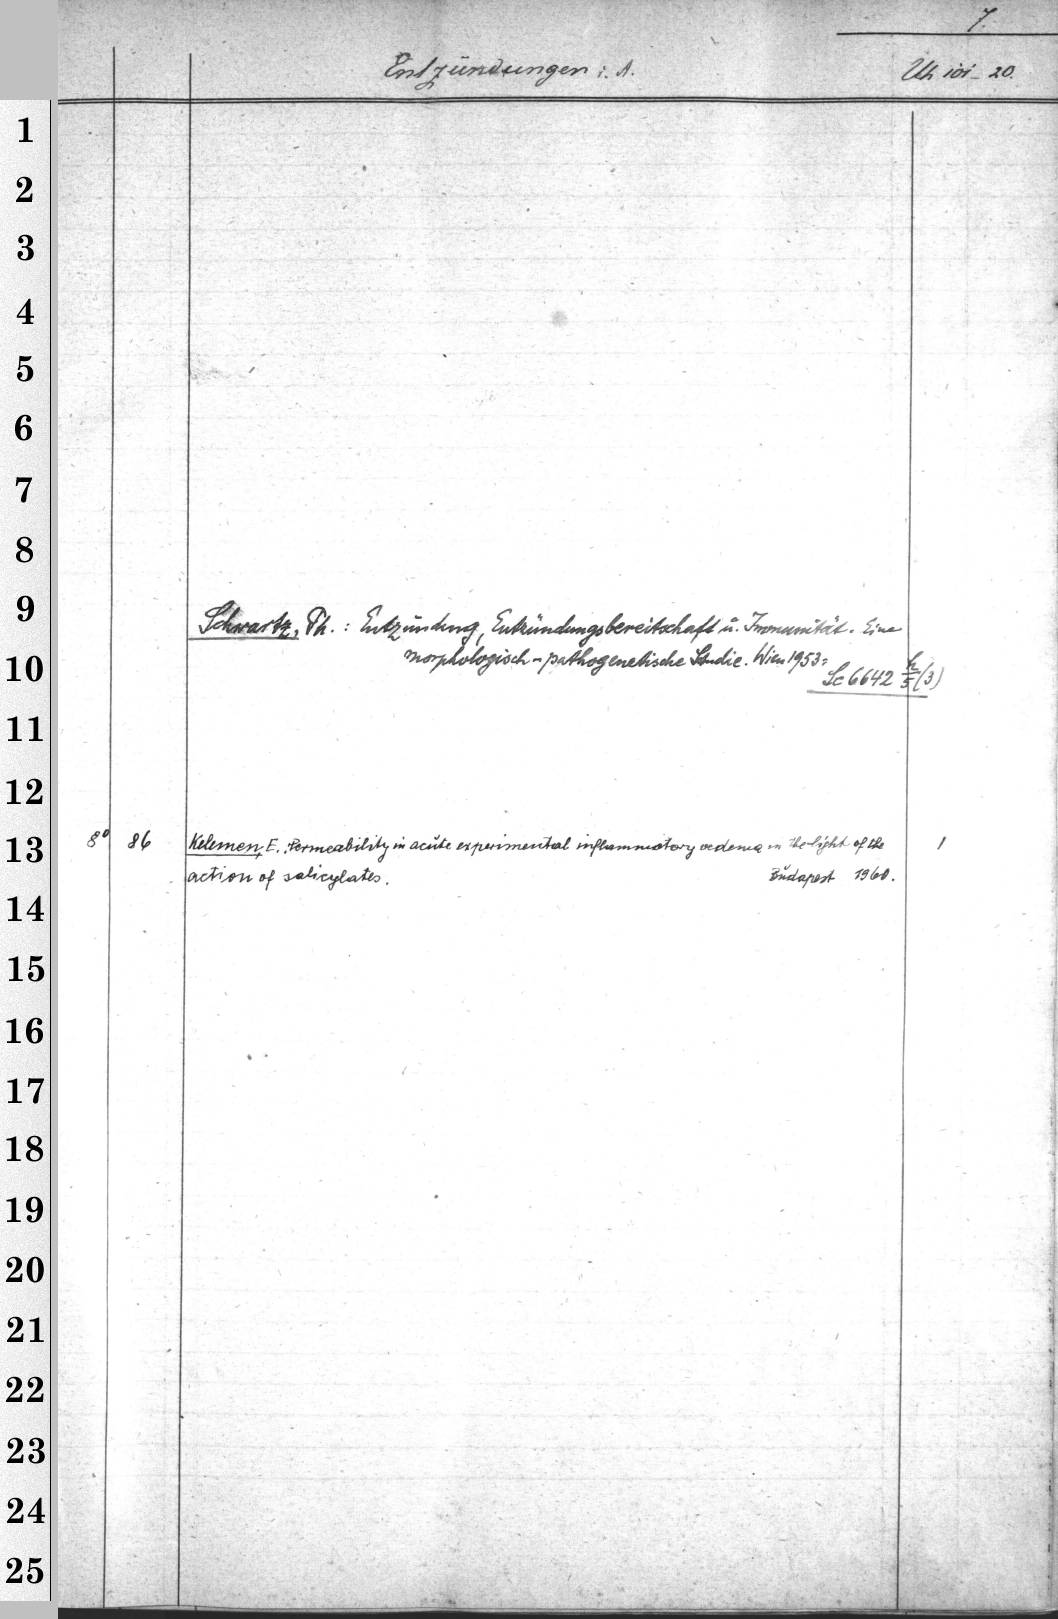 7.
Entzündungen i. A.
Uh 101-20.
1
2
3
4
5
6
7
8
9
Schwartz, Ph.: Entzündung, Entzündungsbereitschaft u. Immunität. Eine
10
morphologisch-pathogenetische Studie. Wien 1953:
Sc 6642 h/5 (3)
11
12
13
8° 86 Kelemen, E.: Permeability in acute experimental inflammatory oedema in the light of the 1
action of salicylates. Budapest 1960.
14
15
16
17
18
19
20
21
22
23
24
25